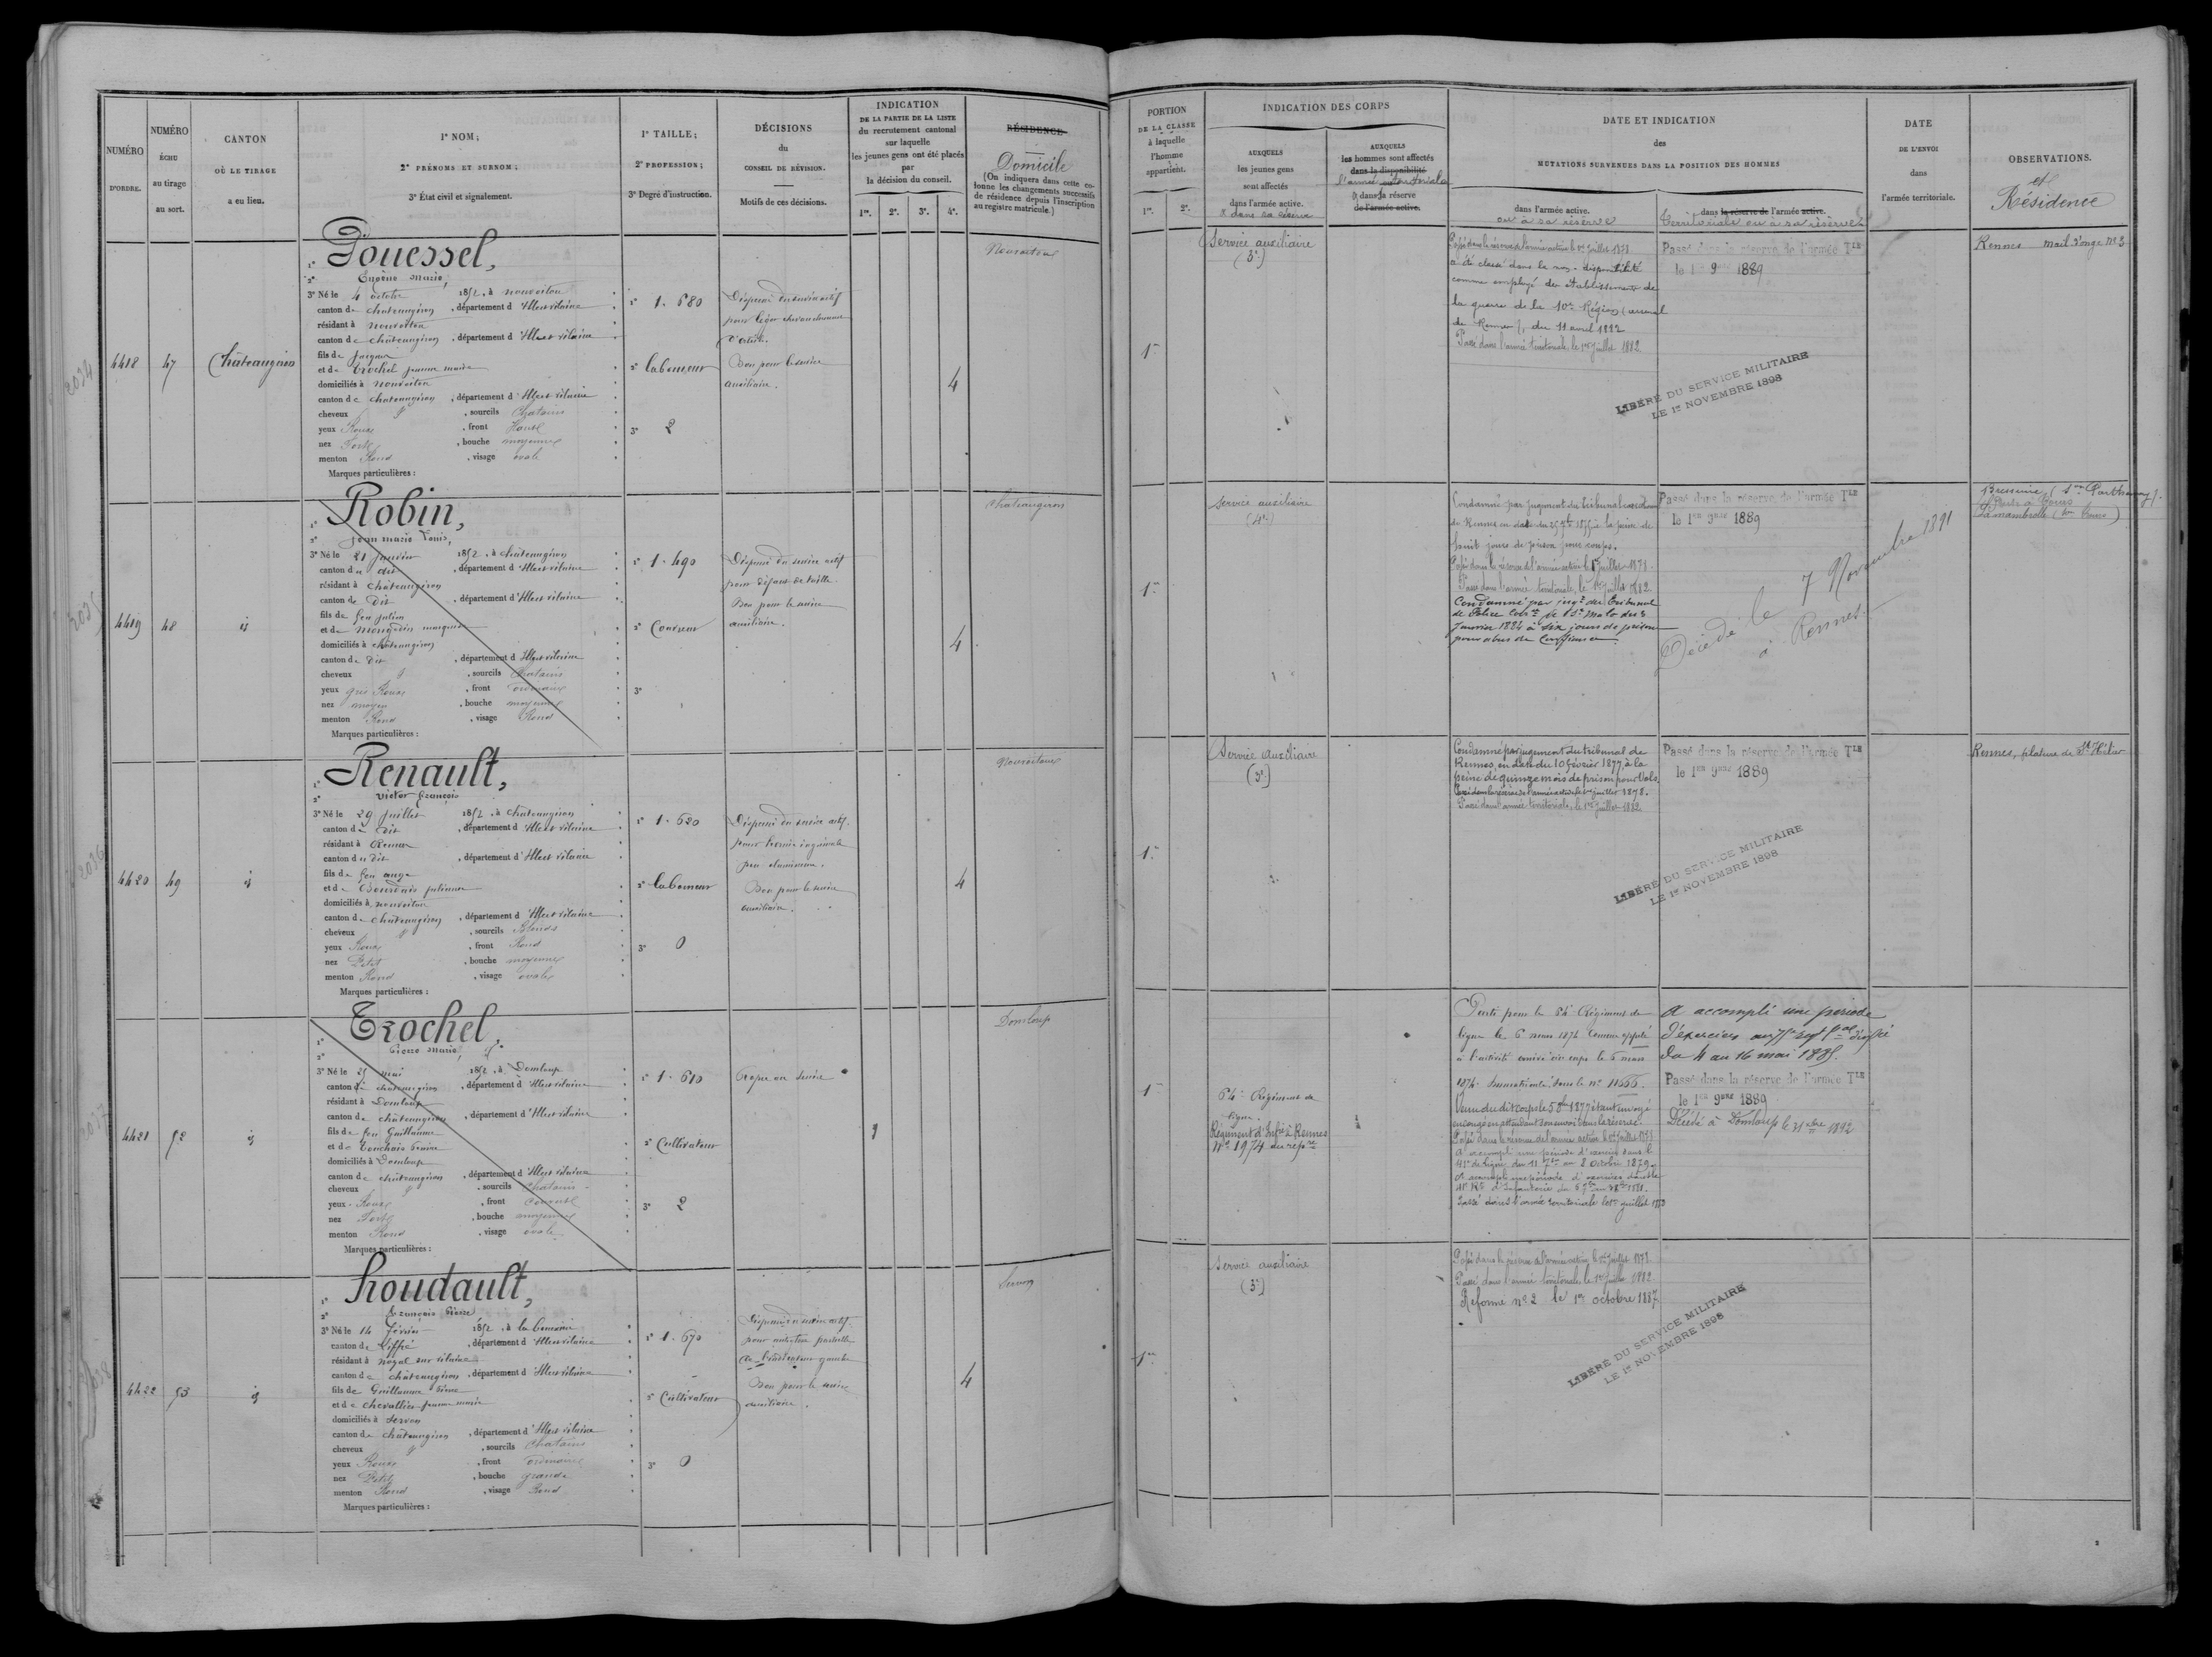 NUMÉRO
D'ORDRE.
NUMÉRO
ÉCHU
au tirage
au sort.
CANTON
OÙ LE TIRAGE
a eu lieu.
1° NOM ;
2° PRÉNOMS ET SURNOM ;
3° État civil et signalement.
1° TAILLE ;
2° PROFESSION ;
3° Degré d'instruction.
DÉCISIONS
du
CONSEIL DE RÉVISION.
Motifs de ces décisions.
INDICATION
DE LA PARTIE DE LA LISTE
du recrutement cantonal
sur laquelle
les jeunes gens ont été placés
par
la décision du conseil.
1re. 2e. 3e. 4e.
RÉSIDENCE
Domicile
(On indiquera dans cette co-
lonne les changements successifs
de résidence depuis l'inscription
au registre matricule.)
PORTION
DE LA CLASSE
à laquelle
l'homme
appartient.
1re. 2e.
INDICATION DES CORPS
AUXQUELS
les jeunes gens
sont affectés
dans l'armée active.
& dans sa réserve
AUXQUELS
les hommes sont affectés
dans la disponibilité
l'armée territoriale
& dans sa réserve
de l'armée active.
DATE ET INDICATION
des
MUTATIONS SURVENUES DANS LA POSITION DES HOMMES
dans l'armée active.
ou à sa réserve
dans la réserve de l'armée active.
Territoriale ou à sa réserve
DATE
DE L'ENVOI
dans
l'armée territoriale.
OBSERVATIONS.
et
Résidence
2034
4418
47
Châteaugiron
1° Gouessel,
2° Eugène Marie,
3° Né le 4 octobre 1852, à nouvoitou
canton de chateaugiron, département d'Ille et vilaine
résidant à nouvoitou
canton de châteaugiron, département d'Ille et vilaine
fils de
et de Trochel jeanne marie
domiciliés à nouvoitou
canton de chateaugiron, département d'Ille et vilaine
cheveux, sourcils Chatains
yeux Roux, front Haut
nez Fort, bouche moyenne
menton Rond, visage ovale
Marques particulières :
1° 1. 680
2° laboureur
3° 2
Dispensé du service actif
pour
Bon pour le service
auxiliaire.
4
Nouvoitou
1re
Service auxiliaire
(3e)
Passé dans la réserve de l'armée active le 1er Juillet 1878
a été classé dans la non-disponibilité
comme employé des établissements de
la guerre de la 10e Région (arsenal
de Rennes), du 11 avril 1882
Passé dans l'armée territoriale, le 1er Juillet 1882.
Passé dans la réserve de l'armée Tle
le 1er 9bre 1889
LIBÉRÉ DU SERVICE MILITAIRE
LE 1er NOVEMBRE 1898
Rennes mail d'onge N° 3
2035
4419
48
id
1° Robin,
2° Jean marie Louis,
3° Né le 21 janvier 1852, à chateaugiron
canton du dit, département d'Ille et vilaine
résidant à châteaugiron
canton de Dit, département d'Ille et vilaine
fils de feu julien
et de
domiciliés à châteaugiron
canton de Dit, département d'Ille et vilaine
cheveux, sourcils Chatains
yeux gris Roux, front ordinaire
nez moyen, bouche moyenne
menton Rond, visage Rond
Marques particulières :
1° 1. 490
2° Couvreur
3°
Dispensé du service actif
pour défaut de taille.
Bon pour le service
auxiliaire.
4
Chateaugiron
1re
Service auxiliaire
(4e)
Condamné par jugement du tribunal correctionnel
de Rennes en date du 25 7bre 1875 à la peine de
huit jours de prison pour coups.
Passé dans la réserve de l'armée active le 1er juillet 1878.
Passé dans l'armée territoriale, le 1er Juillet 1882.
Condamné par jugt du Tribunal
de Police Corrle de St Malo du 3
Janvier 1884 à Six jours de prison
pour abus de Confiance
Passé dans la réserve de l'armée Tle
le 1er 9bre 1889
Décédé le 7 Novembre 1891
à Rennes
Bressuire (Son Parthenay).
La membrolle (Son Tours)
2036
4420
49
id
1° Renault,
2° Victor François
3° Né le 29 juillet 1852, à chateaugiron
canton du Dit, département d'Ille et vilaine
résidant à
canton du Dit, département d'Ille et vilaine
fils de feu ange
et de julienne
domiciliés à nouvoitou
canton de châteaugiron, département d'Ille et vilaine
cheveux, sourcils Blonds
yeux Roux, front Rond
nez Petit, bouche moyenne
menton Rond, visage ovale
Marques particulières :
1° 1. 620
2° laboureur
3° 0
Dispensé du service actif.
pour hernie inguinale
peu volumineuse.
Bon pour le service
auxiliaire.
4
Nouvoitou
1re
Service auxiliaire
(3e)
Condamné par jugement du tribunal de
Rennes, en date du 10 février 1877, à la
peine de quinze mois de prison pour Vols.
Passé dans la réserve de l'armée active le 1er juillet 1878.
Passé dans l'armée territoriale, le 1er Juillet 1882
Passé dans la réserve de l'armée Tle
le 1er 9bre 1889
LIBÉRÉ DU SERVICE MILITAIRE
LE 1er NOVEMBRE 1898
Rennes, filature de St Hélier
2037
4421
52
id
1° Trochel
2° Pierre Marie,
3° Né le 25 mai 1852, à Domloup
canton de chateaugiron, département d'Ille et vilaine
résidant à Domloup
canton de châteaugiron, département d'Ille et vilaine
fils de feu Guillaume
et de
domiciliés à Domloup
canton de châteaugiron, département d'Ille et vilaine
cheveux, sourcils Chatains
yeux Roux, front Couvert
nez Fort, bouche moyenne
menton Rond, visage ovale
Marques particulières :
1° 1. 610
2° Cultivateur
3° 2
Propre au service
1
Domloup
1re
64e Régiment de
ligne.
Régiment d'Infie à Rennes
N° 1974 du repre
Parti pour le 64e Régiment de
ligne le 6 mars 1874 Comme appelé
à l'activité arrivé au corps le 6 mars
1874. Immatriculé sous le n° 11666.
Venu du dit corps le 5 8bre 1877 étant envoyé
en congé en attendant son envoi dans la réserve.
Passé dans la réserve de l'armée active le 1er juillet 1878
a accompli une période d'exercices dans le
41e de ligne du 11 7bre au 8 octobre 1879.
A accompli une période d'exercices dans le
41e Rt d'Infanterie
Passé dans l'armée territoriale le 1er juillet
A accompli une période
d'exercices au 75e Regt
du 4 au 16 mai 1885.
Passé dans la réserve de l'armée Tle
le 1er 9bre 1889
Décédé à Domloup le 31 1892
4422
53
id
1° Houdault,
2° François Pierre
3° Né le 14 février 1852, à la Bouexière
canton de Liffré, département d'Ille et vilaine
résidant à noyal sur vilaine
canton de châteaugiron, département d'Ille et vilaine
fils de Guillaume Pierre
et de Chevallier jeanne marie
domiciliés à Servon
canton de châteaugiron, département d'Ille et vilaine
cheveux, sourcils Chatains
yeux Roux, front ordinaire
nez Petit, bouche grande
menton Rond, visage Rond
Marques particulières :
1° 1. 670
2° Cultivateur
3° 0
Dispensé du service actif
pour partielle
de l'indicateur gauche
Bon pour le service
auxiliaire.
4
Servon
1re
Service auxiliaire
(3e)
Passé dans la réserve de l'armée active le 1er Juillet 1878
Passé dans l'armée territoriale, le 1er Juillet 1882
Réformé n° 2 le 1er octobre 1887
LIBÉRÉ DU SERVICE MILITAIRE
LE 1er NOVEMBRE 1898